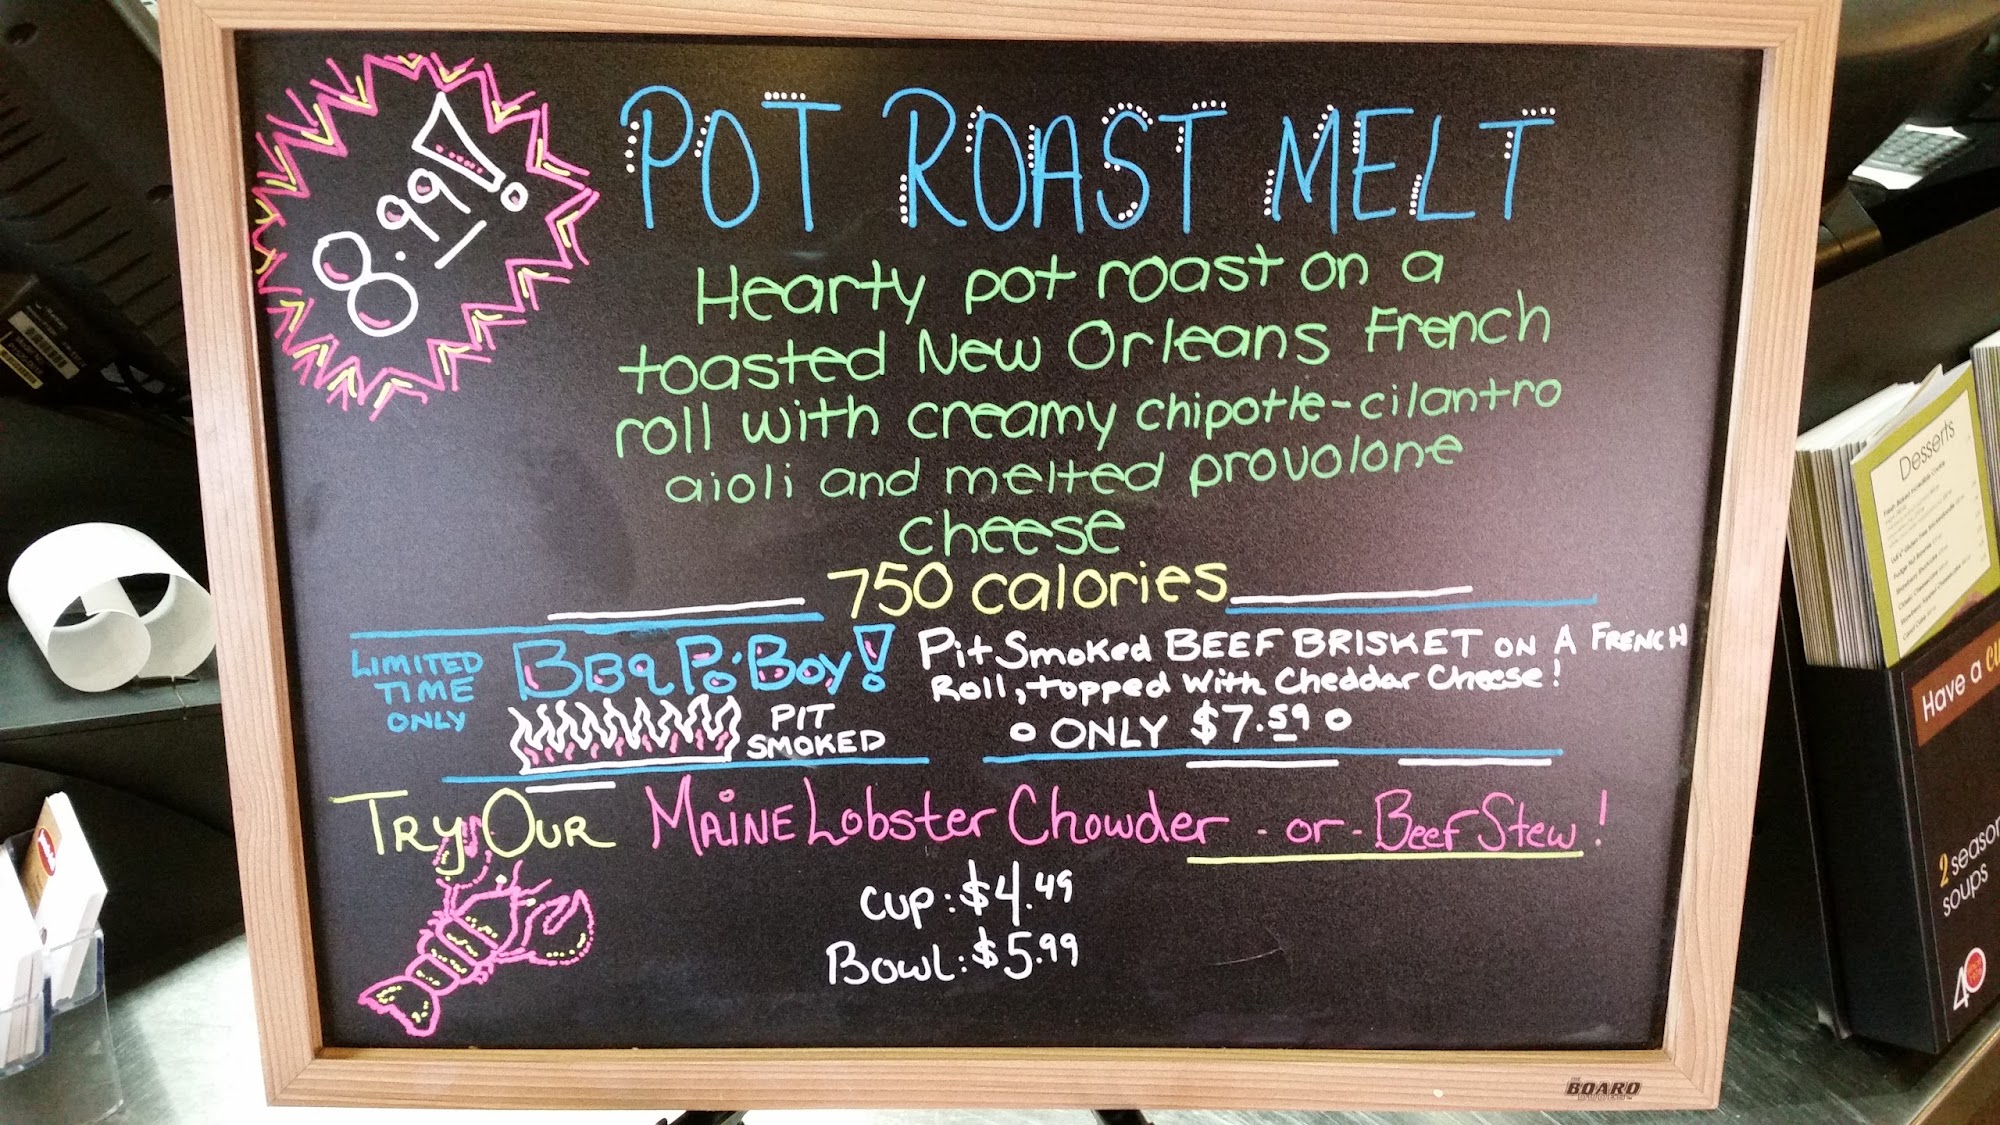 8.99!
POT ROAST MELT
Hearty pot roast on a
toasted New Orleans French
roll with creamy chipotle-cilantro
aioli and melted provolone
cheese
750 calories
LIMITED
TIME
ONLY
BBQ Po' Boy!
PIT
SMOKED
Pit Smoked BEEF BRISKET ON A FRENCH
Roll, topped with Cheddar Cheese!
ONLY $7.59
TRY OUR MAINE Lobster Chowder - or - Beef Stew!
CUP: $4.49
BOWL: $5.99
BOARD
Desserts
Have a
2 season
soups
40